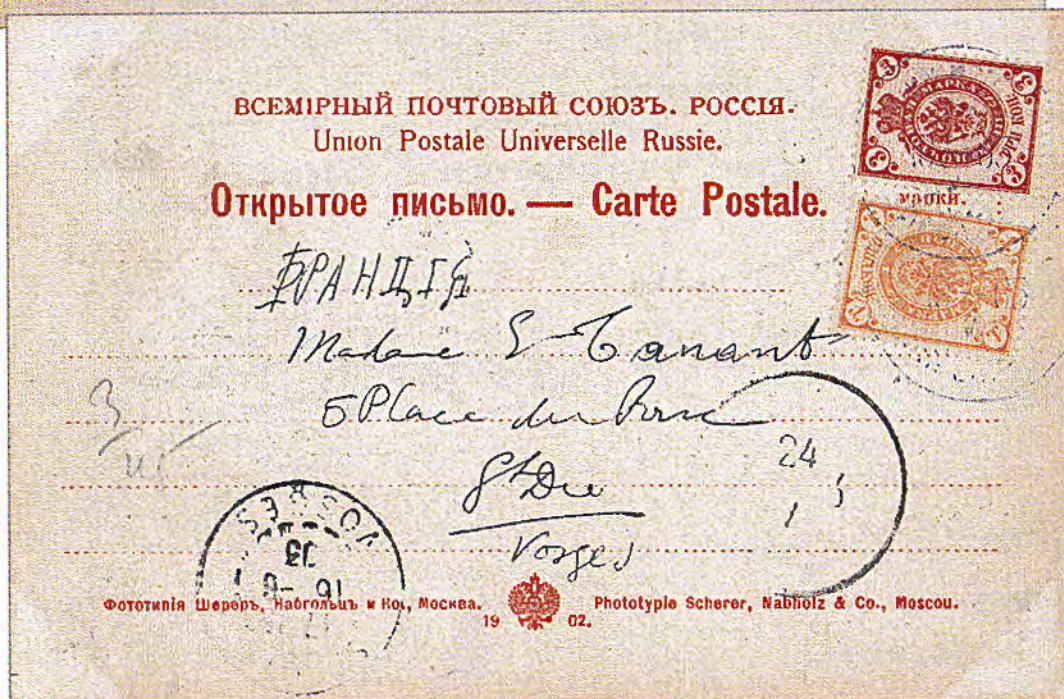 ВСЕМІРНЫЙ ПОЧТОВЫЙ СОЮЗЪ. РОССІЯ.
Union Postale Universelle Russie.
Открытое письмо. — Carte Postale.
марки.
ФРАНЦІЯ
Madame E
5 Place du
St Die
Vosges
24
3
VOSGES
Фототипія Шереръ, Набгольцъ и Ко, Москва.
Phototypie Scherer, Nabholz & Co., Moscou.
19 02.